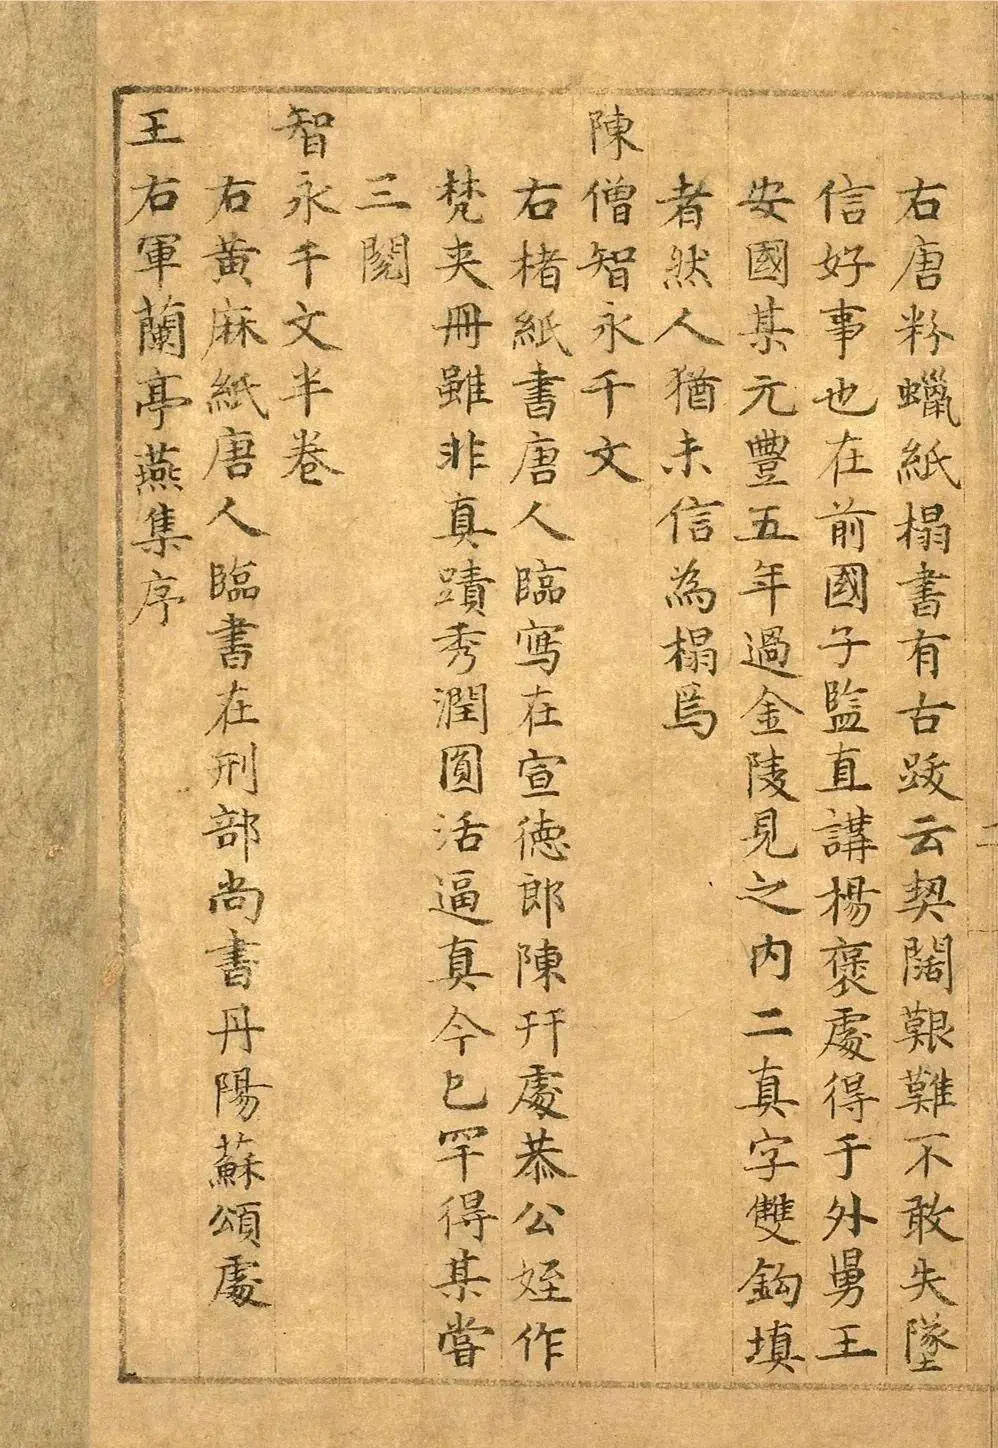 右唐粉蠟紙榻書有古跋云契闊艱難不敢失墜
信好事也在前國子監直講楊褒處得于外舅王
安國某元豐五年過金陵見之内二真字雙鈎填
者然人猶未信為榻焉
陳僧智永千文
右楮紙書唐人臨寫在宣德郎陳开處恭公姪作
梵夾冊雖非真蹟秀潤圓活逼真今已罕得某嘗
三閱
智永千文半卷
右黄麻紙唐人臨書在刑部尚書丹陽蘇頌處
王右軍蘭亭燕集序